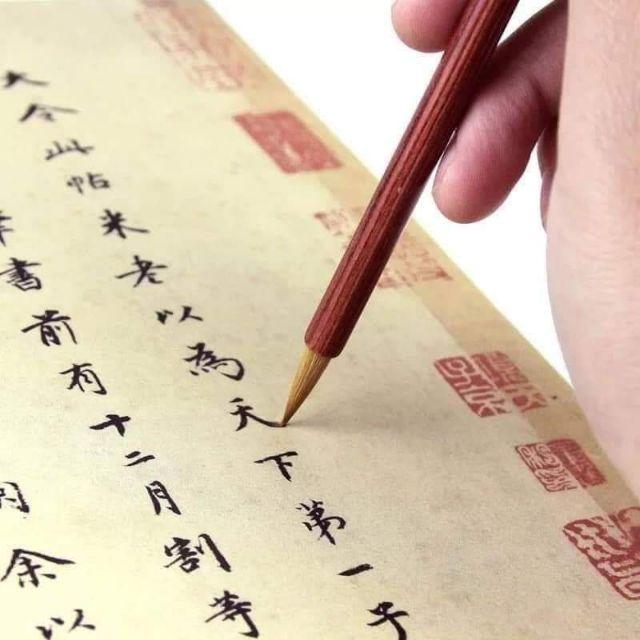 大令此帖米老以為天下第一子
書前有十二月割等
用余以